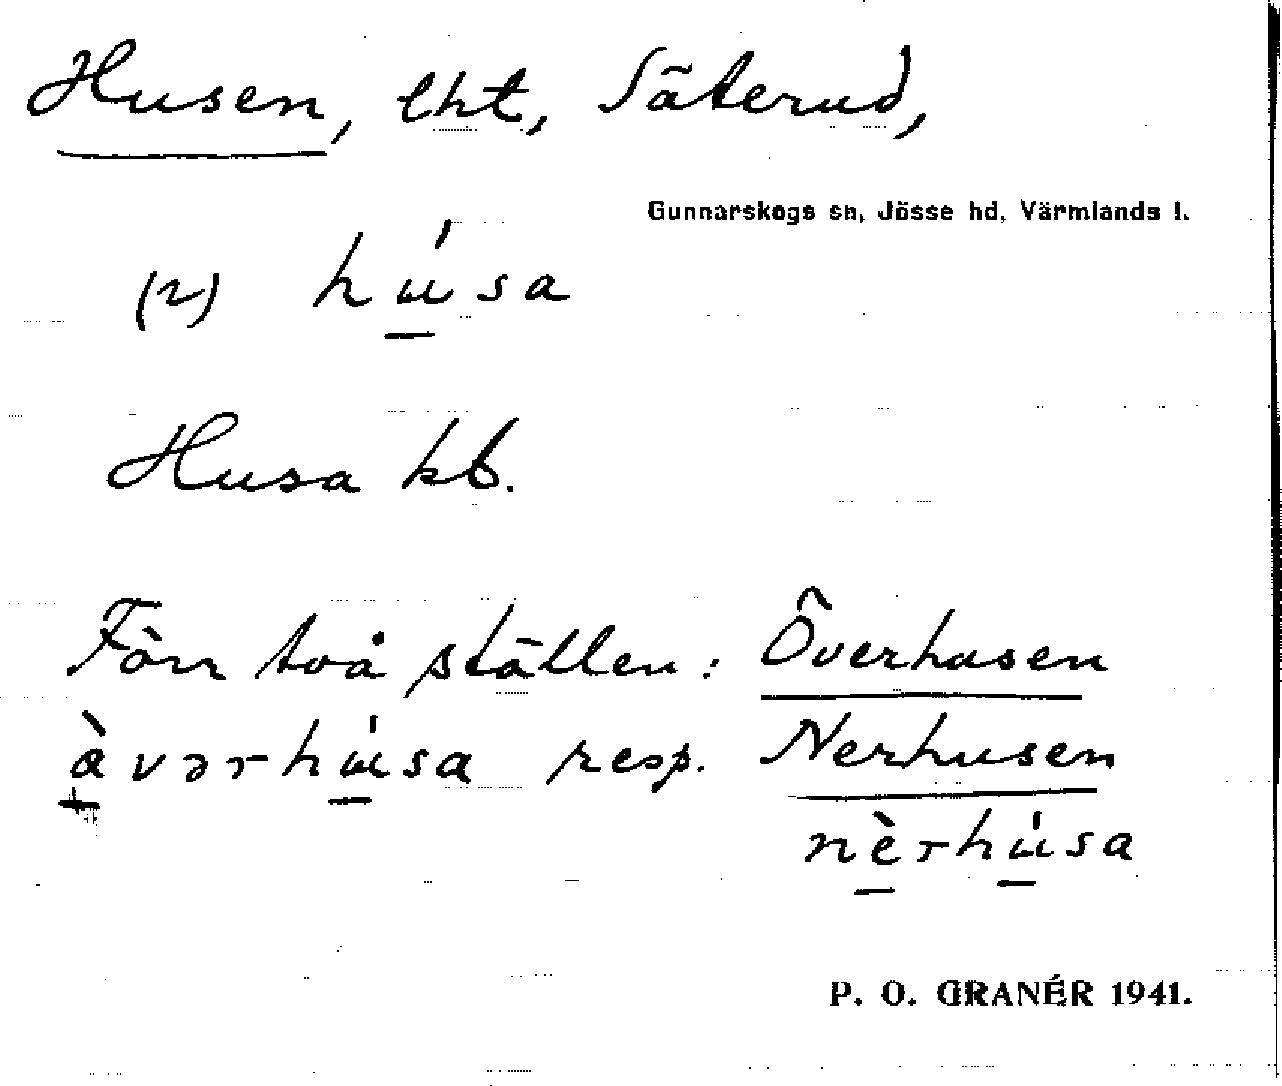 Husen, lht, Säterud,
Gunnarskogs sn, Jösse hd, Värmlands l.
(2) hú̲sa
Husa kb.
Förr två ställen: Överhusen
à̲vərhú̲sa resp. Nerhusen
nè̲rhú̲sa
P. O. GRANÉR 1941.